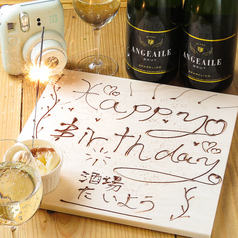 ANGEAILE
BRUT
ANGEAILE
BRUT
Happy
Birthday
酒場
たいよう